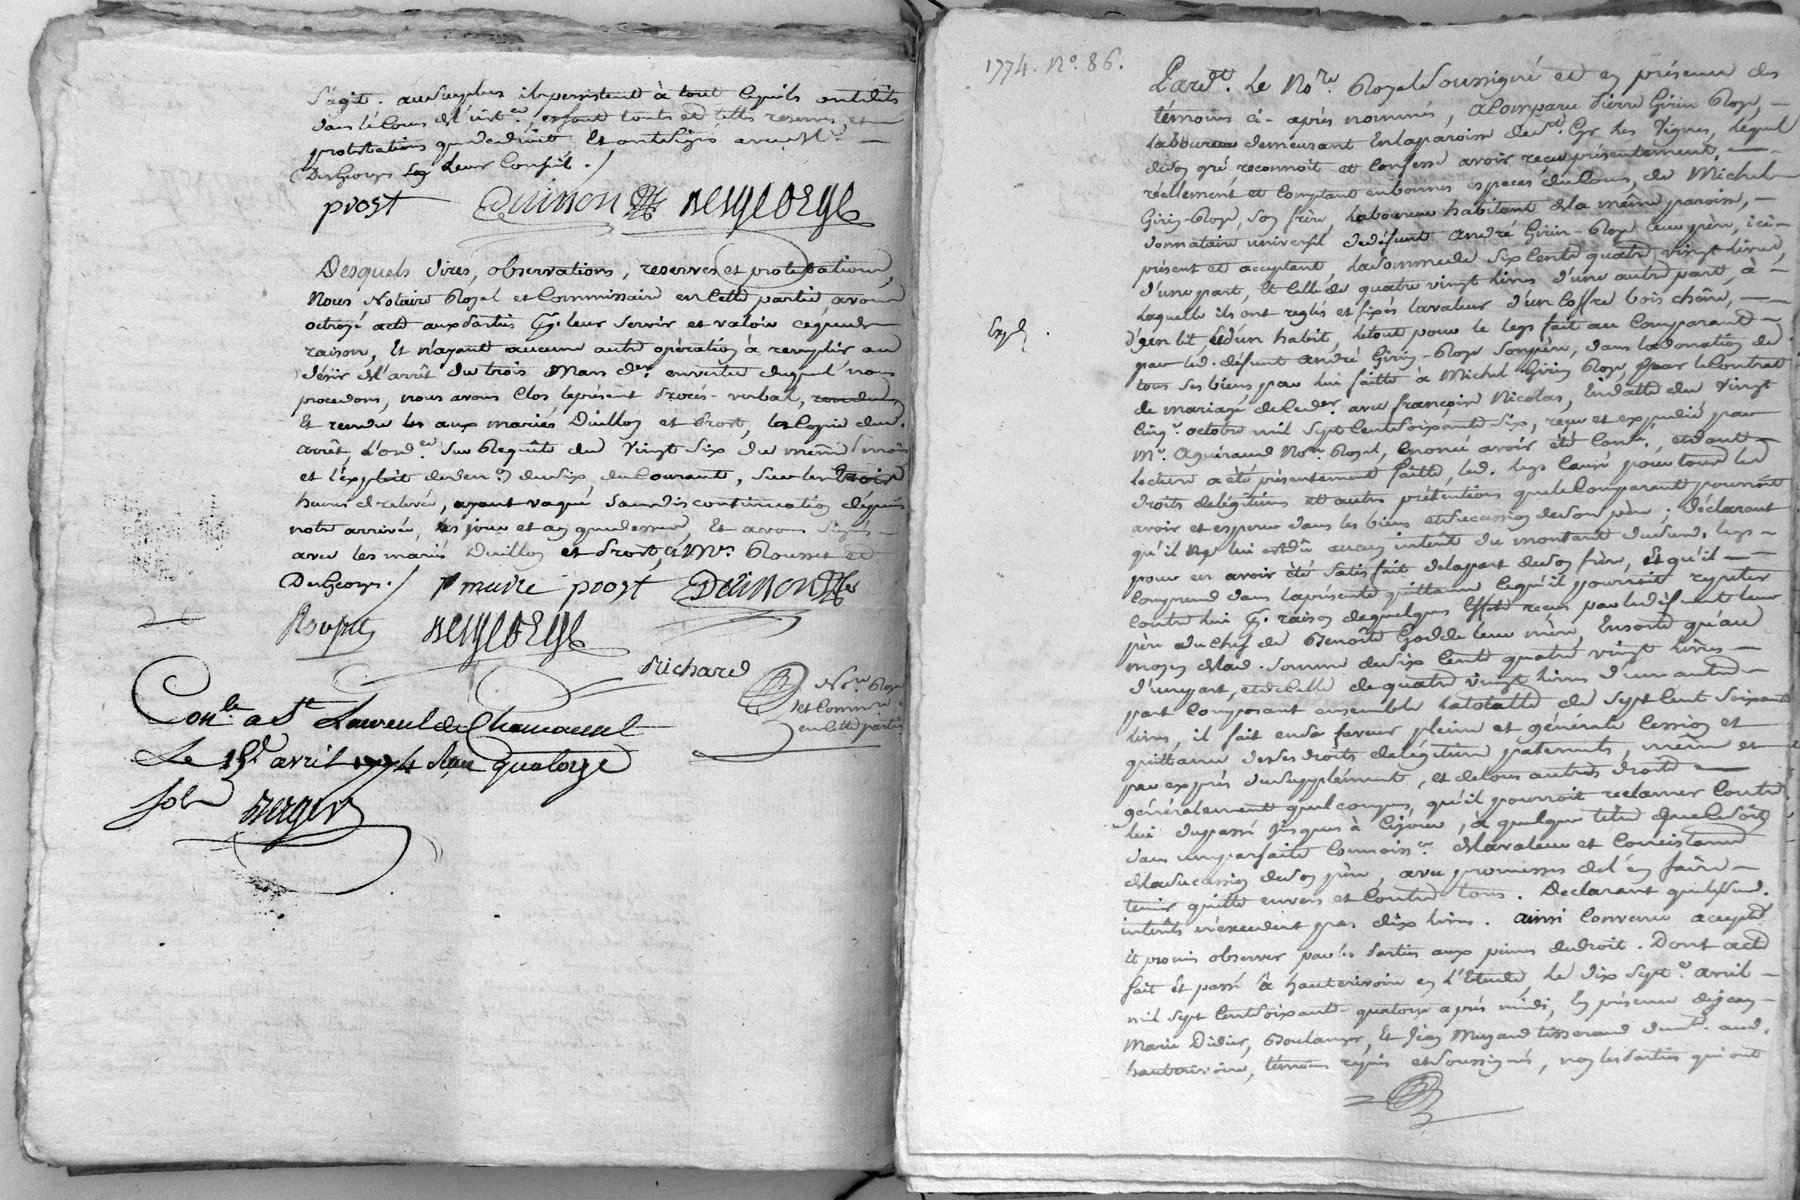 s'agit. au surplus ils persistent à tout ce qu'ils ont dit
dans le cours et sous toutes et telles reserves et
protestations que de droit, Et ont signé avec Me
DesGeorges leur Conseil ./
prost Duivon desgeorge
Desquels dires, observations, reserves et protestations,
Nous Notaire Royal et Commissaire en cette partie avons
octroyé acte aux parties pr. leur servir et valoir ce que de
raison, Et n'ayant aucune autre opération à remplir au
désir de l'arrêt du trois Mars der. en vertu duquel nous
procedons, nous avons Clos le présent Procés-verbal,
Et rendu aux mariés Duillon et Prost, la Copie dud.
arrêt, l'ord.ce sur Requête du vingt six du même mois
et l'exploit du six du Courant, sur les trois
heures de relevée, ayant vaqué sans discontinuation depuis
notre arrivée, les jour et an que dessus, Et avons signé
avec les mariés Duillon et Prost, & Mes. Rousset et
DesGeorges ./ prost Duivon
Rousset desgeorge
Richard
Nore Royal
et Commre
en cette partie
Conlé a St Laurent de Chamousset
Le 18e avril 1774 Reçu quatorze
sols Berger
1774. No. 86.
Pardt. Le Nore. Royal soussigné et en présence des
témoins ci-après nommés, a Comparu Pierre Girin Roze,
laboureur demeurant En la paroisse de St. Cyr les Vignes, lequel
de son gré reconnoit et Confesse avoir reçu présentement,
réellement et Comptant en bonnes especes du Cours, de Michel
Girin-Roze, son frère, laboureur habitant de la même paroisse,
donnataire universel de défunt André Girin-Roze leur père, ici
présent et acceptant, la somme de six Cents quatre vingt livres,
d'une part, Et Celle de quatre vingt livres d'une autre part, à
laquelle ils ont reglés et fixés la valeur d'un Coffre bois chêne,
d'un lit et d'un habit, le tout pour le legs fait au Comparant
par led. défunt André Girin-Roze son père, dans la donation de
tous ses biens par lui faitte à Michel Girin Roze, par le Contrat
de mariage de Ce der. avec françoise Nicolas, En datte du vingt
Cinq. octobre mil sept Cent soixante six, reçu et expédié par
Me. Aguiraud Nore. Royal, énoncé avoir été Conlé., et dont
lecture a été présentement faitte, led. legs laissé pour tous les
droits de légitime et autres prétentions que le Comparant pourroit
avoir et esperer dans les biens et succession de son père; déclarant
qu'il ne lui est dû aucun intérêt du montant dud. legs
pour en avoir été satisfait de la part de son frère, Et qu'il
Comprend dans la présente quittance ce qu'il pourroit repeter
Contre lui pr. raison de quelques effets reçus par led. défunt leur
père du Chef de Benoîte Godde leur mère, Ensorte qu'au
moyen de lad. somme de six Cents quatre vingt livres
d'une part, et de Celle de quatre vingt livres d'un autre
part Composant ensemble la totalle de sept Cent soixante
livres, il fait en sa faveur pleine et générale Cession et
quittance de ses droits de légitime paternels, même et
par exprés du supplément, et de tous autres droits
généralement quelconques, qu'il pourroit reclamer Contre
lui du passé jusques à Ce jour, à quelque titre que Ce soit
dans une parfaite Connoissce. de la valeur et Consistance
de la succession de son père, avec promesses de l'en faire
tenir quitte envers et Contre tous. Déclarant que lesd.
intérêts n'excedent pas dix livres. Ainsi Convenu accepté
Et promis observer par les Parties aux peines de droit. Dont acte
fait Et passé à hauterivoire en l'Etude, le dix sept.e avril
mil sept Cent soixante-quatorze après midi, En présence de Jean
Marie Didier, Boulanger, Et Jean Muzard tisserand demt. aud.
hauterivoire, témoins requis et soussignés, non les Parties qui ont
Expé.